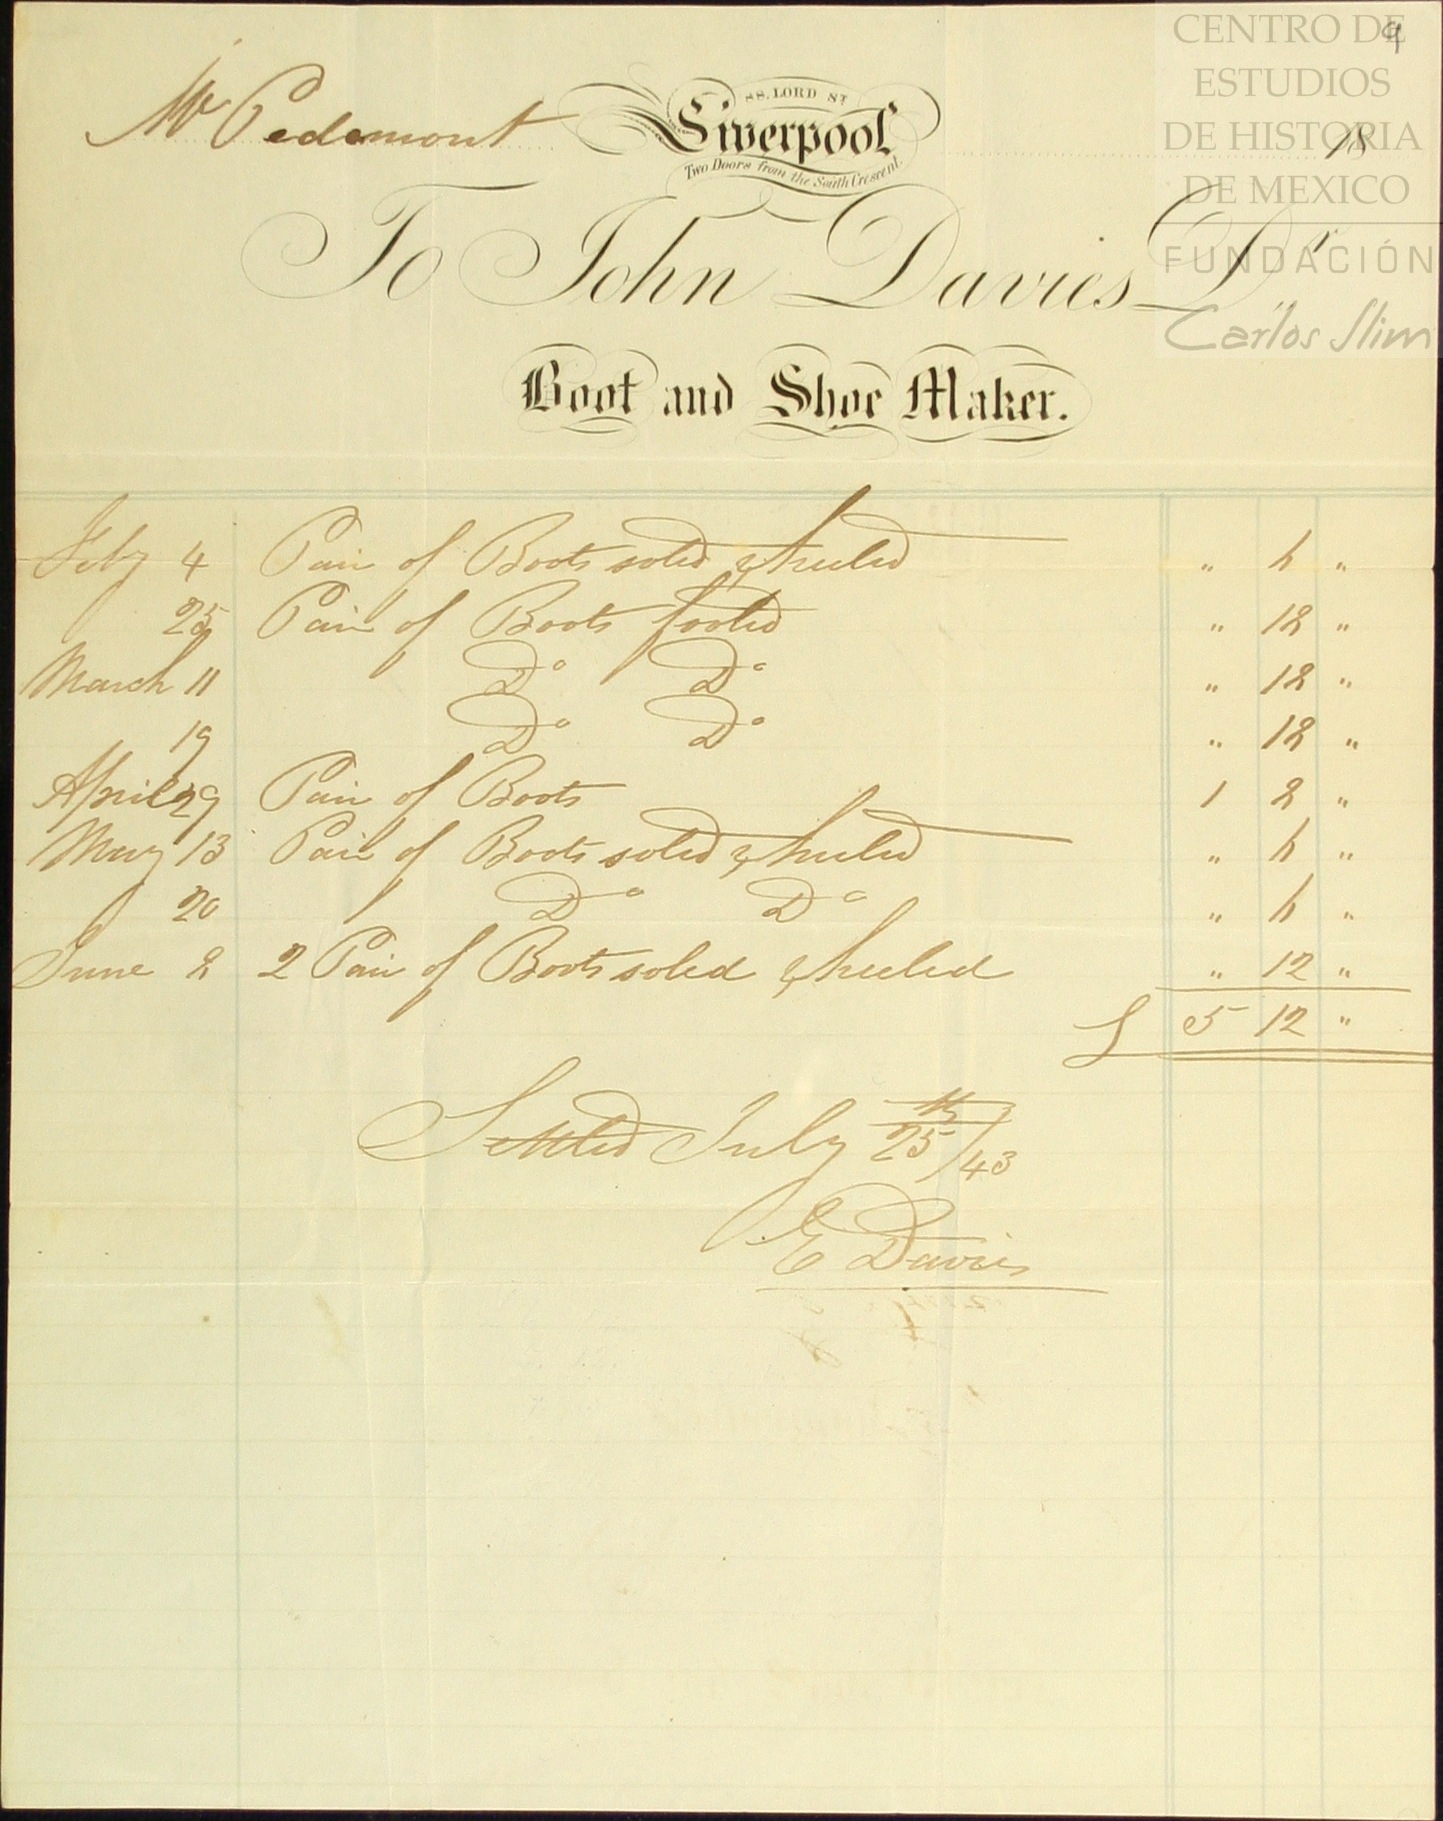 CENTRO DE
ESTUDIOS
DE HISTORIA
DE MEXICO
FUNDACIÓN
Carlos Slim
9
88. LORD ST
Mr Pedemont Liverpool 18
Two Doors from the South Crescent.
To John Davies Dr
Boot and Shoe Maker.
Feby 4 Pair of Boots soled & heeled " 6 "
25 Pair of Boots footed " 18 "
March 11 Do Do " 18 "
19 Do Do " 18 "
April 29 Pair of Boots 1 8 "
May 13 Pair of Boots soled & heeled " 6 "
20 Do Do " 6 "
June 8 2 Pair of Boots soled & heeled " 12 "
£ 5 12 "
Settled July 25th/43
E Davies